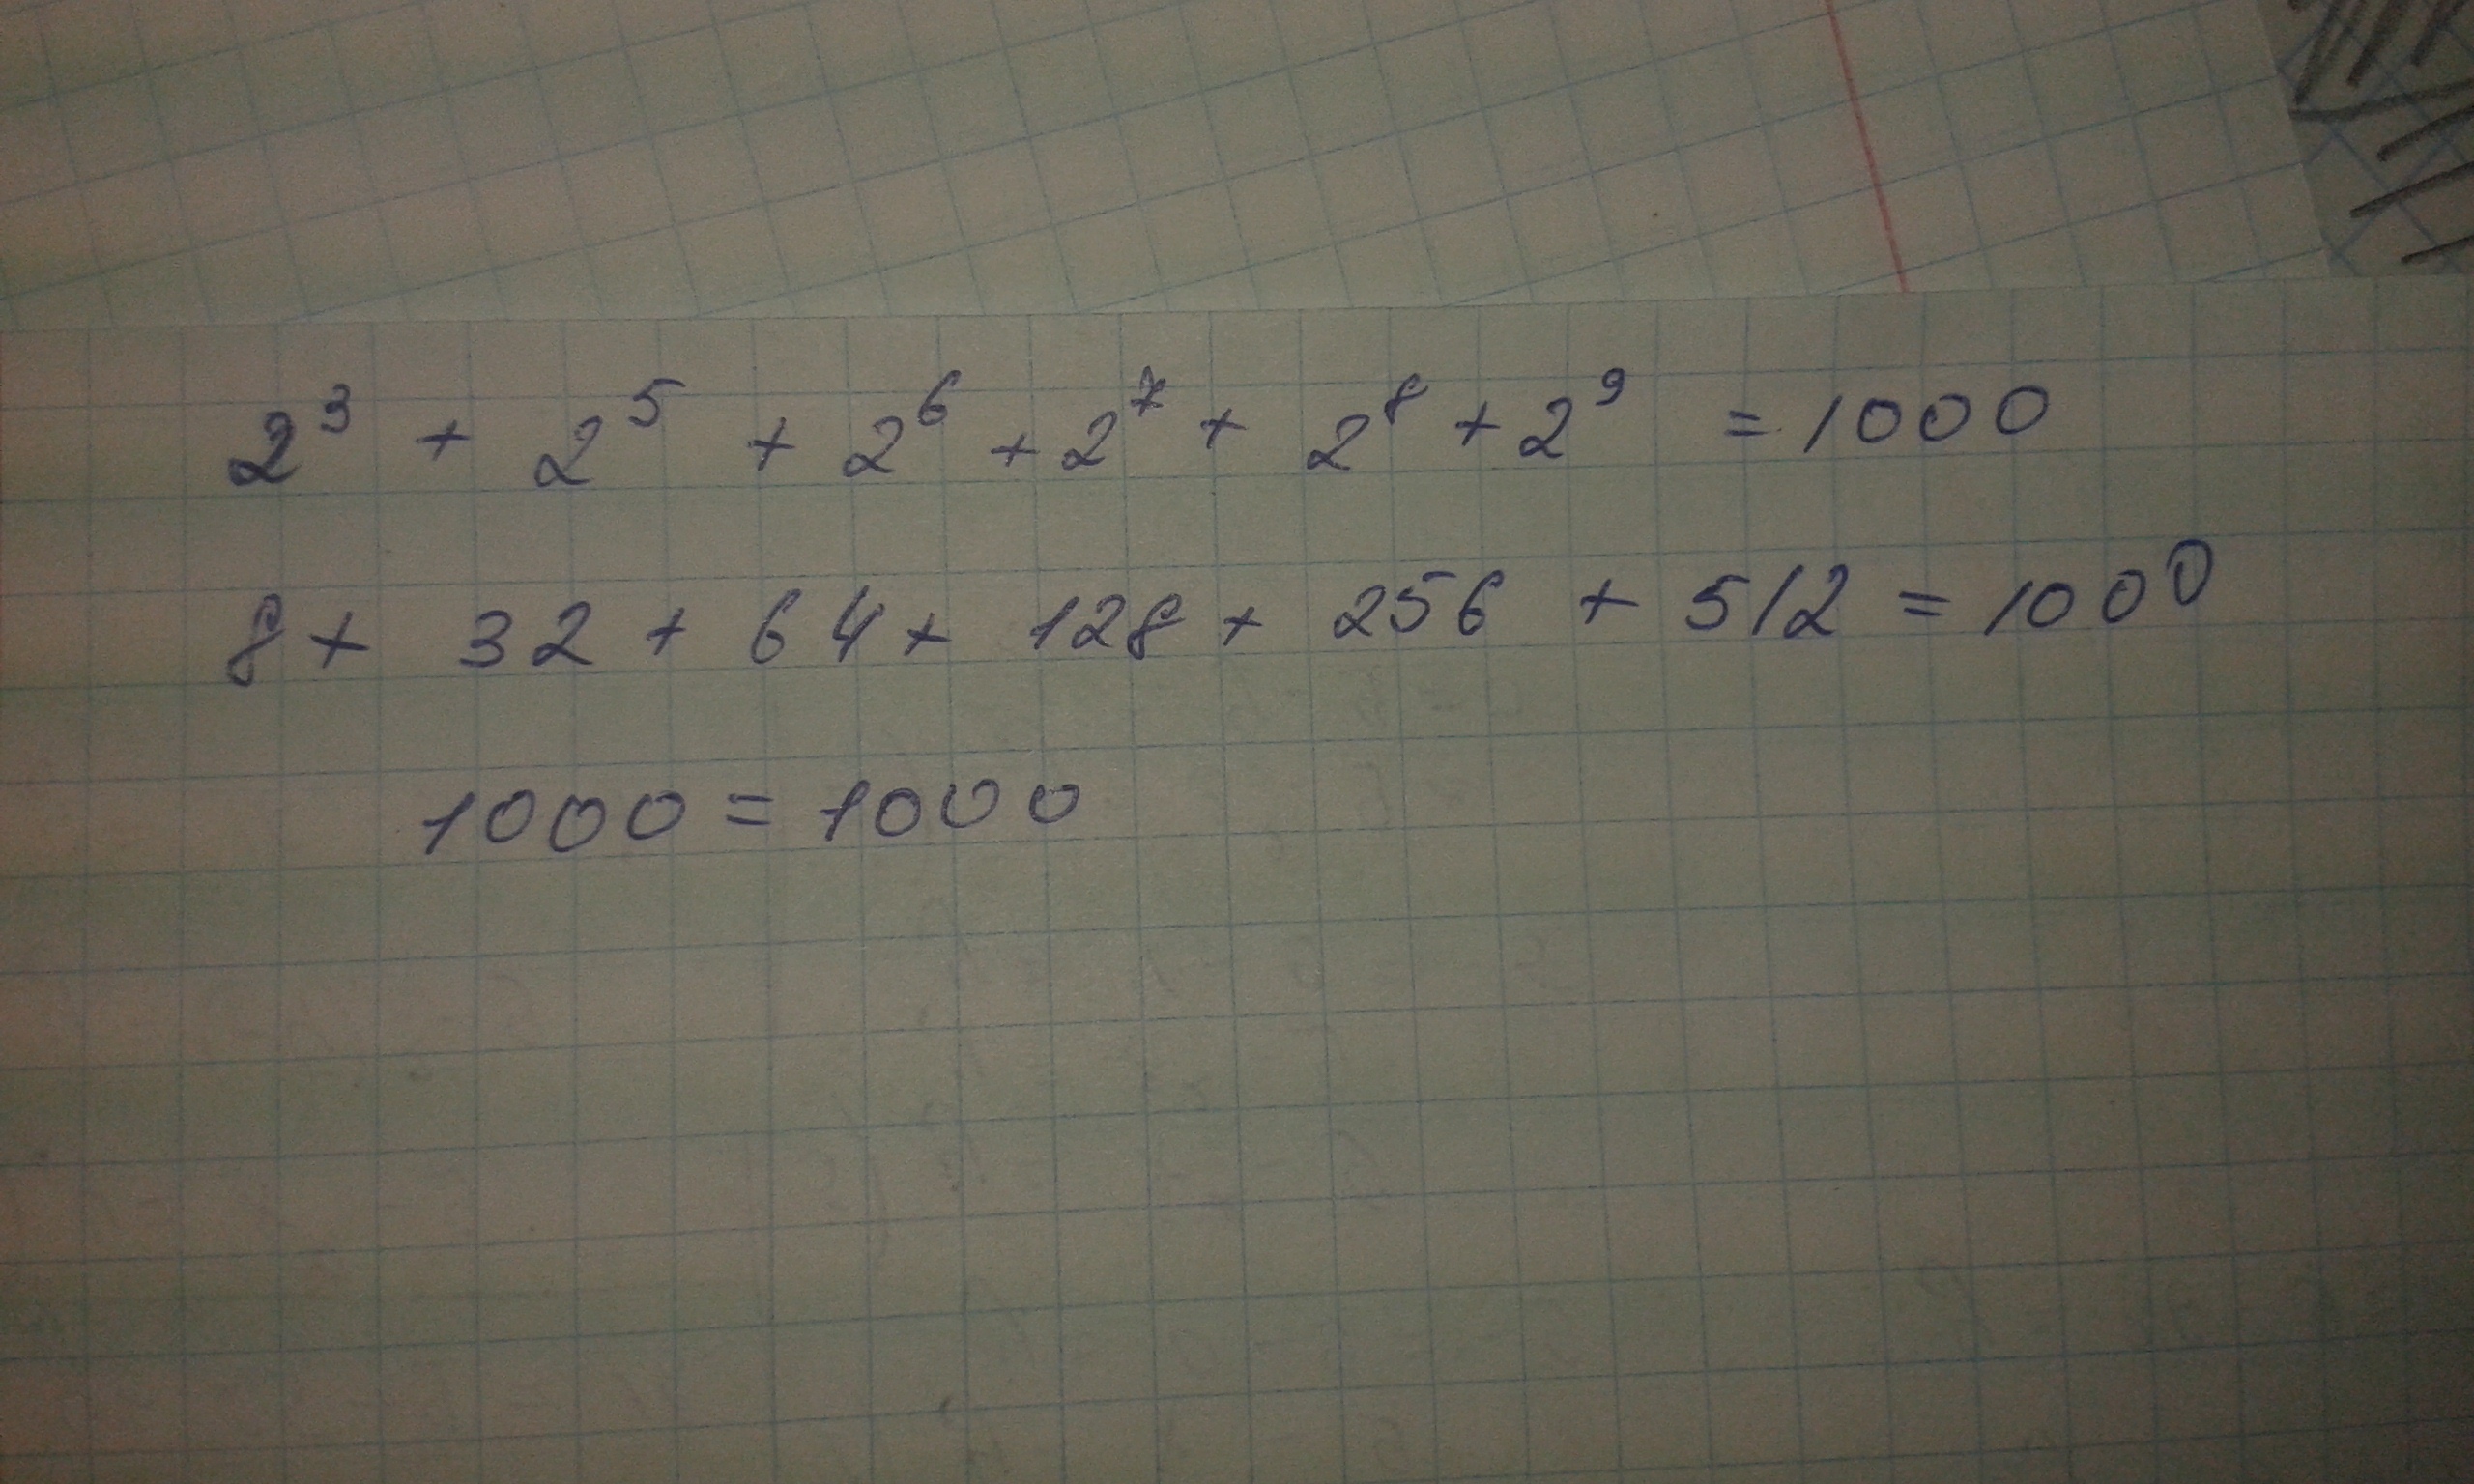 2³ + 2⁵ + 2⁶ + 2⁷ + 2⁸ + 2⁹ = 1000
8 + 32 + 64 + 128 + 256 + 512 = 1000
1000 = 1000